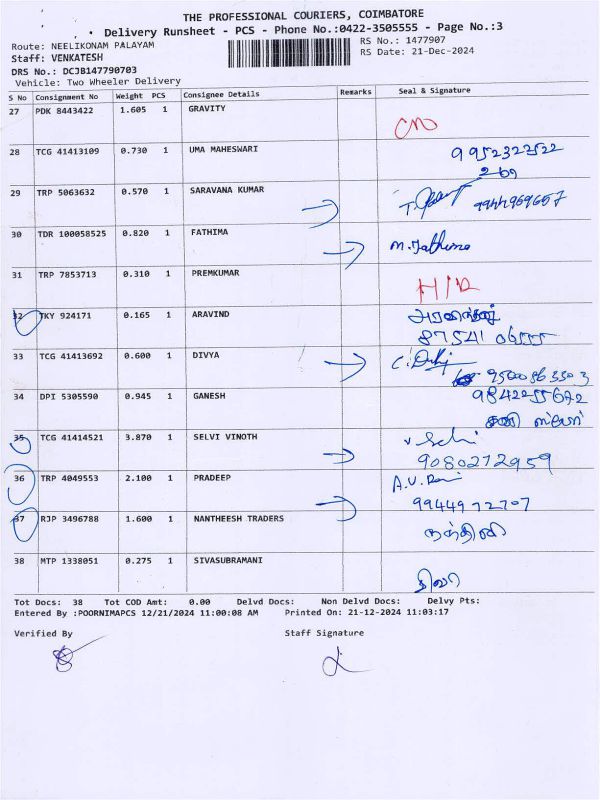 THE PROFESSIONAL COURIERS, COIMBATORE
Delivery Runsheet - PCS - Phone No.:0422-3505555 - Page No.:3
Route: NEELIKONAM PALAYAM RS No.: 1477907
Staff: VENKATESH RS Date: 21-Dec-2024
DRS No.: DCJB147790703
Vehicle: Two Wheeler Delivery
S No Consignment No Weight PCS Consignee Details Remarks Seal & Signature
27 PDK 8443422 1.605 1 GRAVITY
28 TCG 41413109 0.730 1 UMA MAHESWARI
29 TRP 5063632 0.570 1 SARAVANA KUMAR 9944969667
30 TDR 100058525 0.820 1 FATHIMA M. Fathima
31 TRP 7853713 0.310 1 PREMKUMAR
32 TKY 924171 0.165 1 ARAVIND
87541 06555
33 TCG 41413692 0.600 1 DIVYA
34 DPI 5305590 0.945 1 GANESH
35 TCG 41414521 3.870 1 SELVI VINOTH
9080272959
36 TRP 4049553 2.100 1 PRADEEP
9944972707
37 RJP 3496788 1.600 1 NANTHEESH TRADERS
நந்தினி
38 MTP 1338051 0.275 1 SIVASUBRAMANI
சிவா
Tot Docs: 38 Tot COD Amt: 0.00 Delvd Docs: Non Delvd Docs: Delvy Pts:
Entered By :POORNIMAPCS 12/21/2024 11:00:08 AM Printed On: 21-12-2024 11:03:17
Verified By Staff Signature